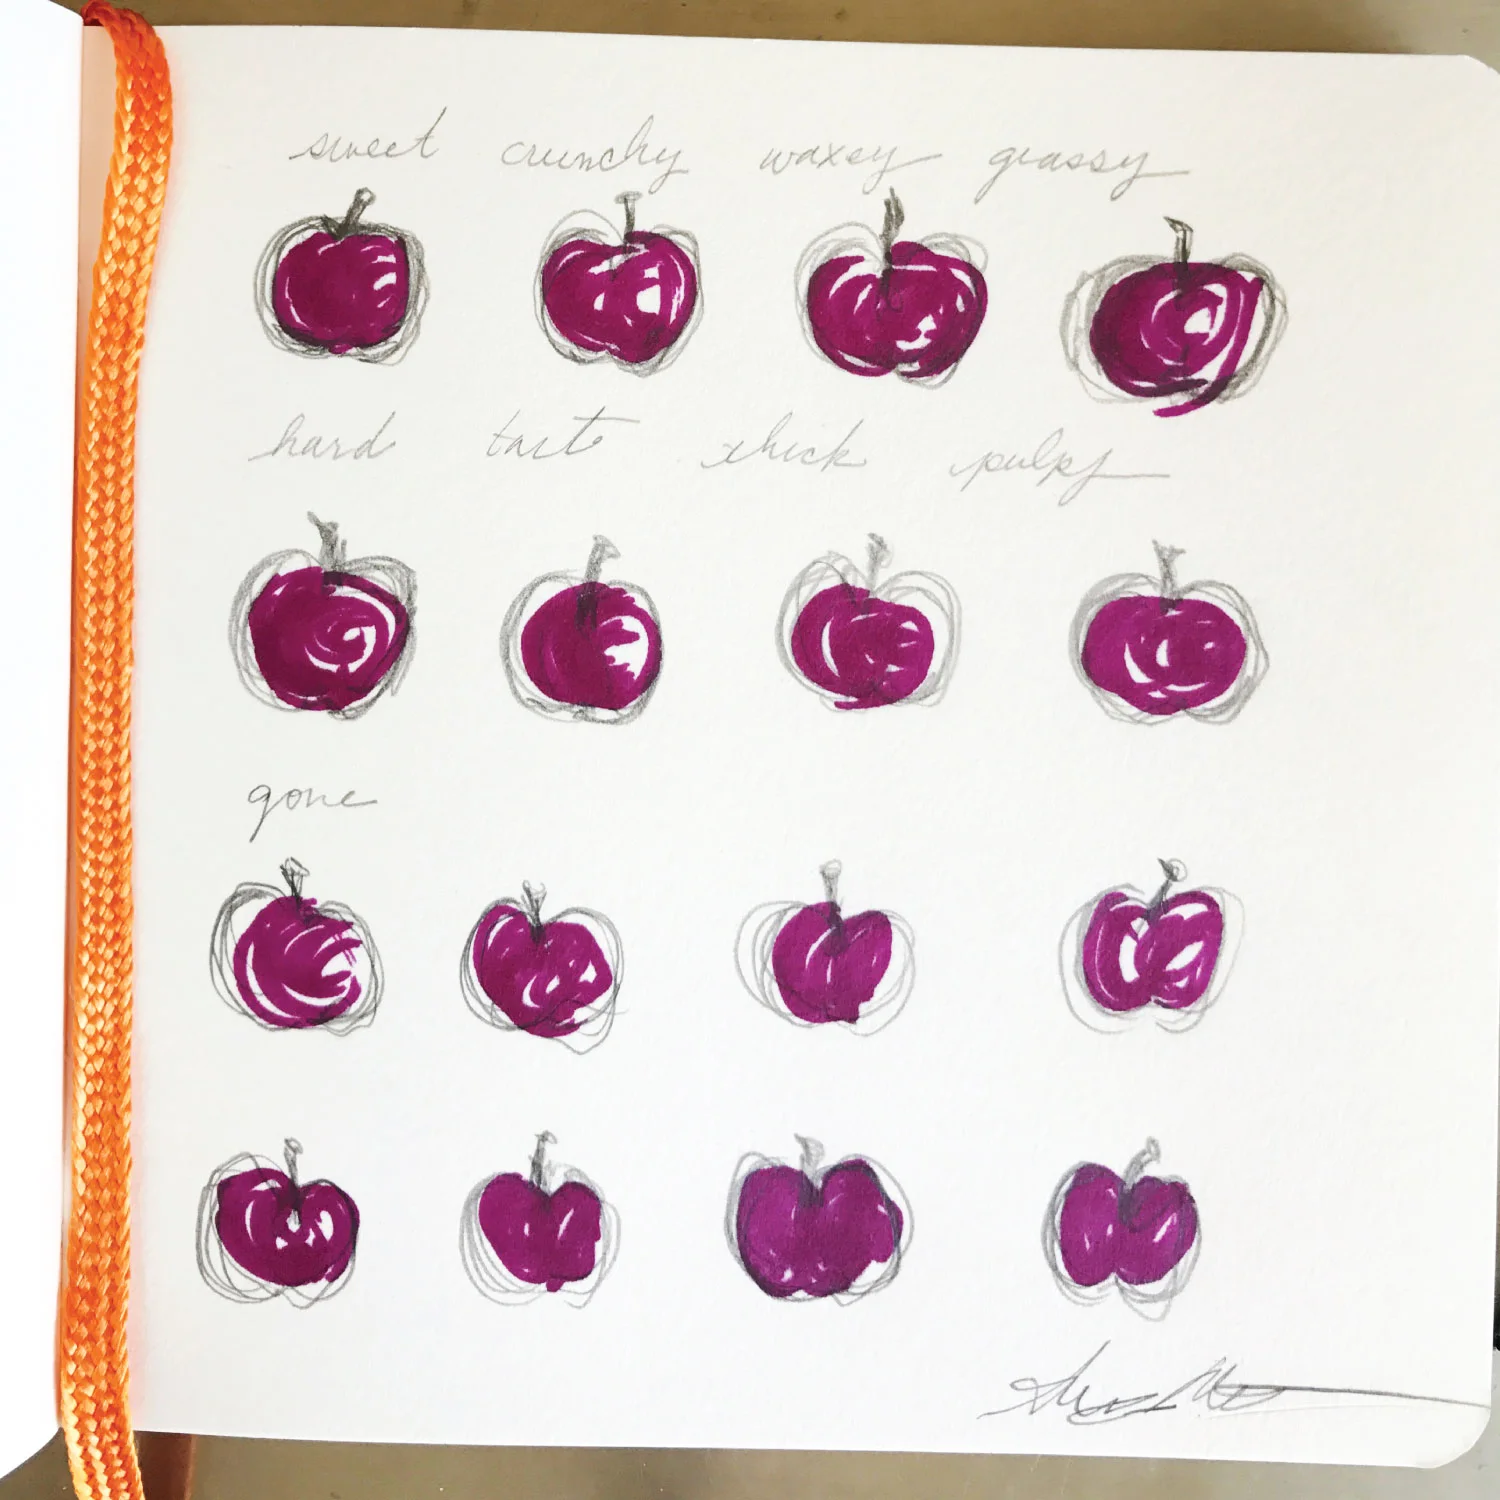 sweet crunchy waxey grassy
hard tart thick pulpy
gone